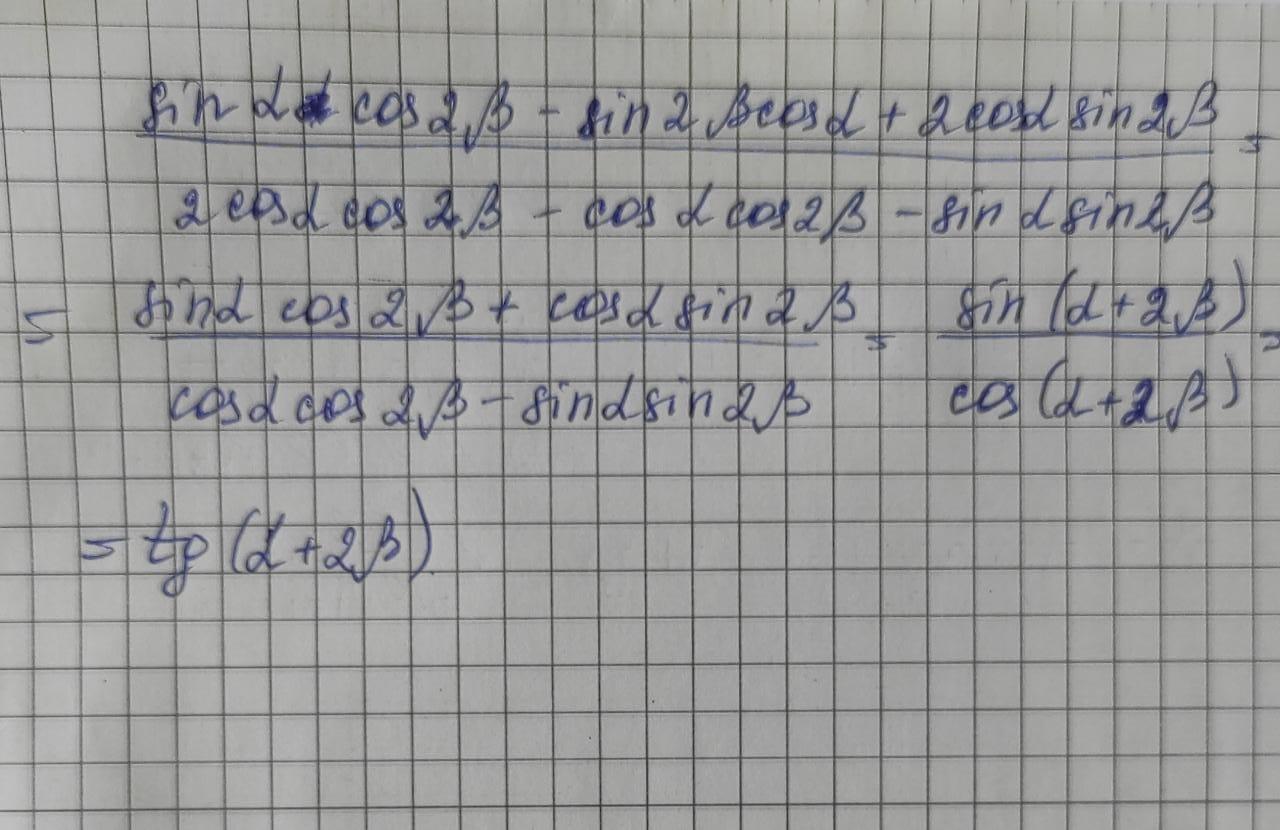 sin α cos 2β - sin 2β cos α + 2 cos α sin 2β =
2 cos α cos 2β - cos α cos 2β - sin α sin 2β
= sin α cos 2β + cos α sin 2β = sin (α + 2β) =
cos α cos 2β - sin α sin 2β cos (α + 2β)
= tg (α + 2β)